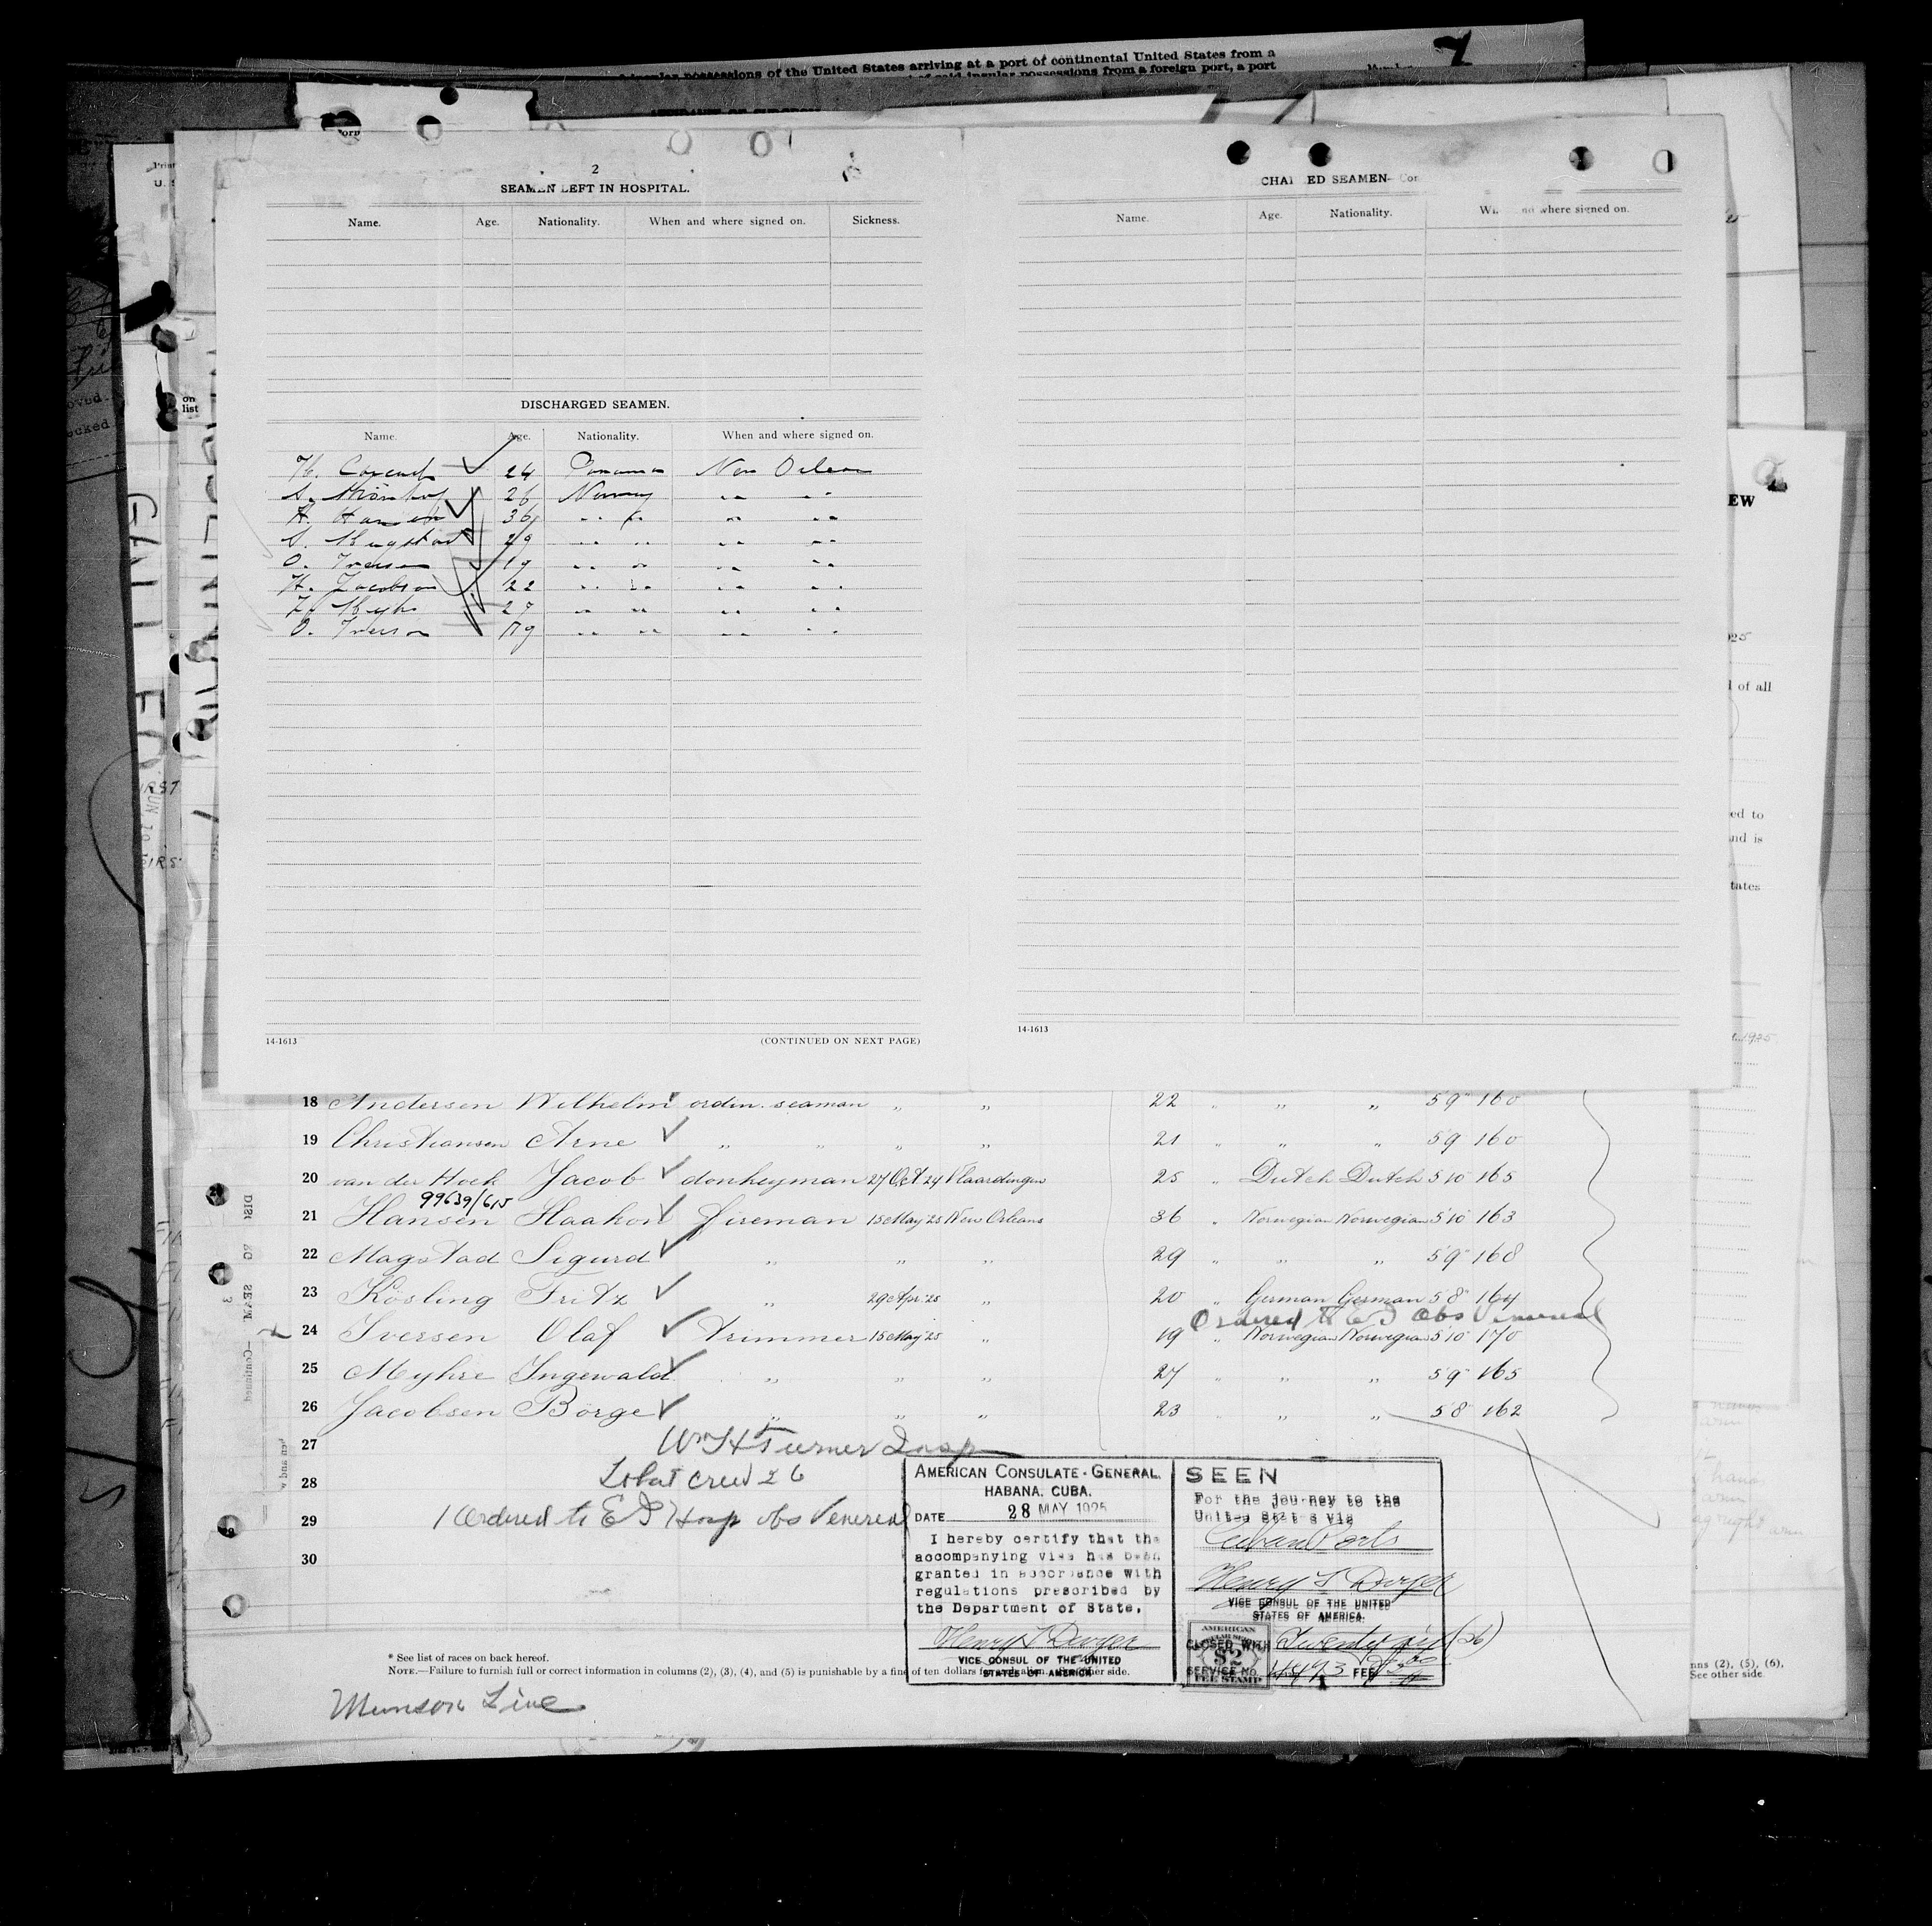 insular possessions of the United States arriving at a port of continental United States from a
of said insular possessions from a foreign port, a port
7
2
SEAMEN LEFT IN HOSPITAL.
Name. Age. Nationality. When and where signed on. Sickness.
DISCHARGED SEAMEN.
Name. Age. Nationality. When and where signed on.
H. 24 Panama New Orleans
S. 26 Norway " "
H. Hansen 36 " " " "
S. Magstad 29 " " " "
O. Iversen 19 " " " "
H. Jacobson 22 " " " "
I. Myhre 27 " " " "
O. Iverson 19 " " " "
14-1613 (CONTINUED ON NEXT PAGE)
ED SEAMEN—Con
Name. Age. Nationality. where signed on.
14-1613
18 Andersen Wilhelm ordin. seaman " " 22 " " " 5'9" 160
19 Christiansen Arne " " " " 21 " " " 5'9 160
20 van der Hoek Jacob donkeyman 27 Oct 24 Vlaardingen 25 " Dutch Dutch 5'10 165
99639/615
21 Hansen Haakon fireman 15 May '25 New Orleans 36 " Norwegian Norwegian 5'10" 163
22 Magstad Sigurd " " " 29 " " " 5'9" 168
23 Kösling Fritz " 29 Apr '25 " 20 " German German 5'8" 164
Ordered to E I Obs Venereal
24 Iversen Olaf trimmer 15 May '25 " 19 " Norwegian Norwegian 5'10" 170
25 Myhre Ingewald " " " 27 " " " 5'9" 165
26 Jacobsen Börge " " " 23 " " " 5'8" 162
27 Wm H Turner Insp
28 Total crew 26
29 1 Ordered to E I Hosp obs Venereal
30
AMERICAN CONSULATE-GENERAL.
HABANA, CUBA.
DATE 28 MAY 1925
I hereby certify that the
accompanying visa has been
granted in accordance with
regulations prescribed by
the Department of State.
Henry T Dwyer
VICE CONSUL OF THE UNITED
STATES OF AMERICA
SEEN
For the journey to the
United States via
Cuban Ports
Henry T Dwyer
VICE CONSUL OF THE UNITED
STATES OF AMERICA.
AMERICAN
$2
FEE STAMP
CLOSED WITH Twenty six (26)
SERVICE NO. 4493 FEE
* See list of races on back hereof.
NOTE.—Failure to furnish full or correct information in columns (2), (3), (4), and (5) is punishable by a fine of ten dollars for each alien. See other side.
Munson Line
EW
of all
ed to
nd is
tates
1925
nns (2), (5), (6),
See other side